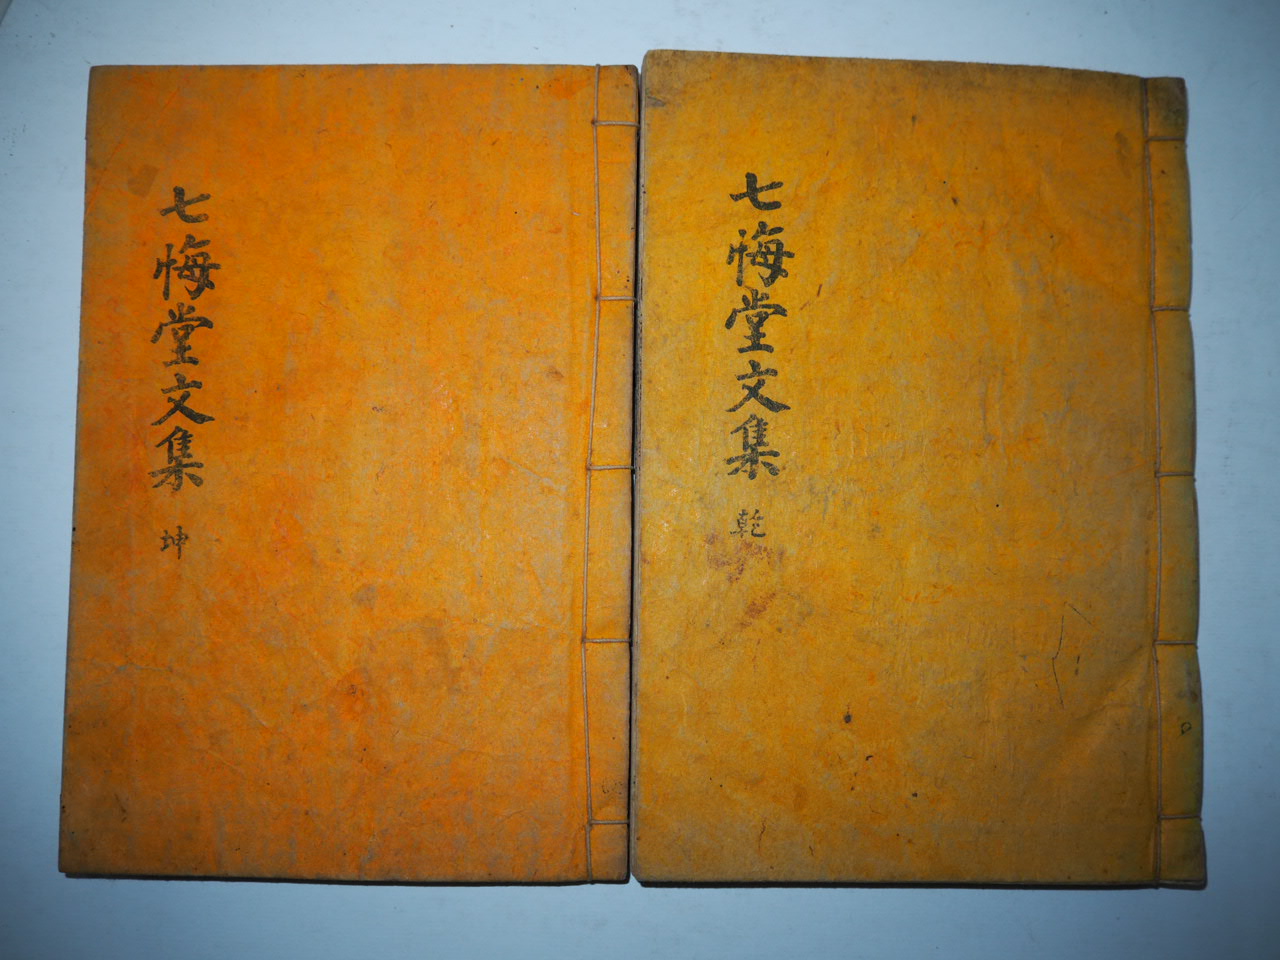 七悔堂文集 乾
七悔堂文集 坤